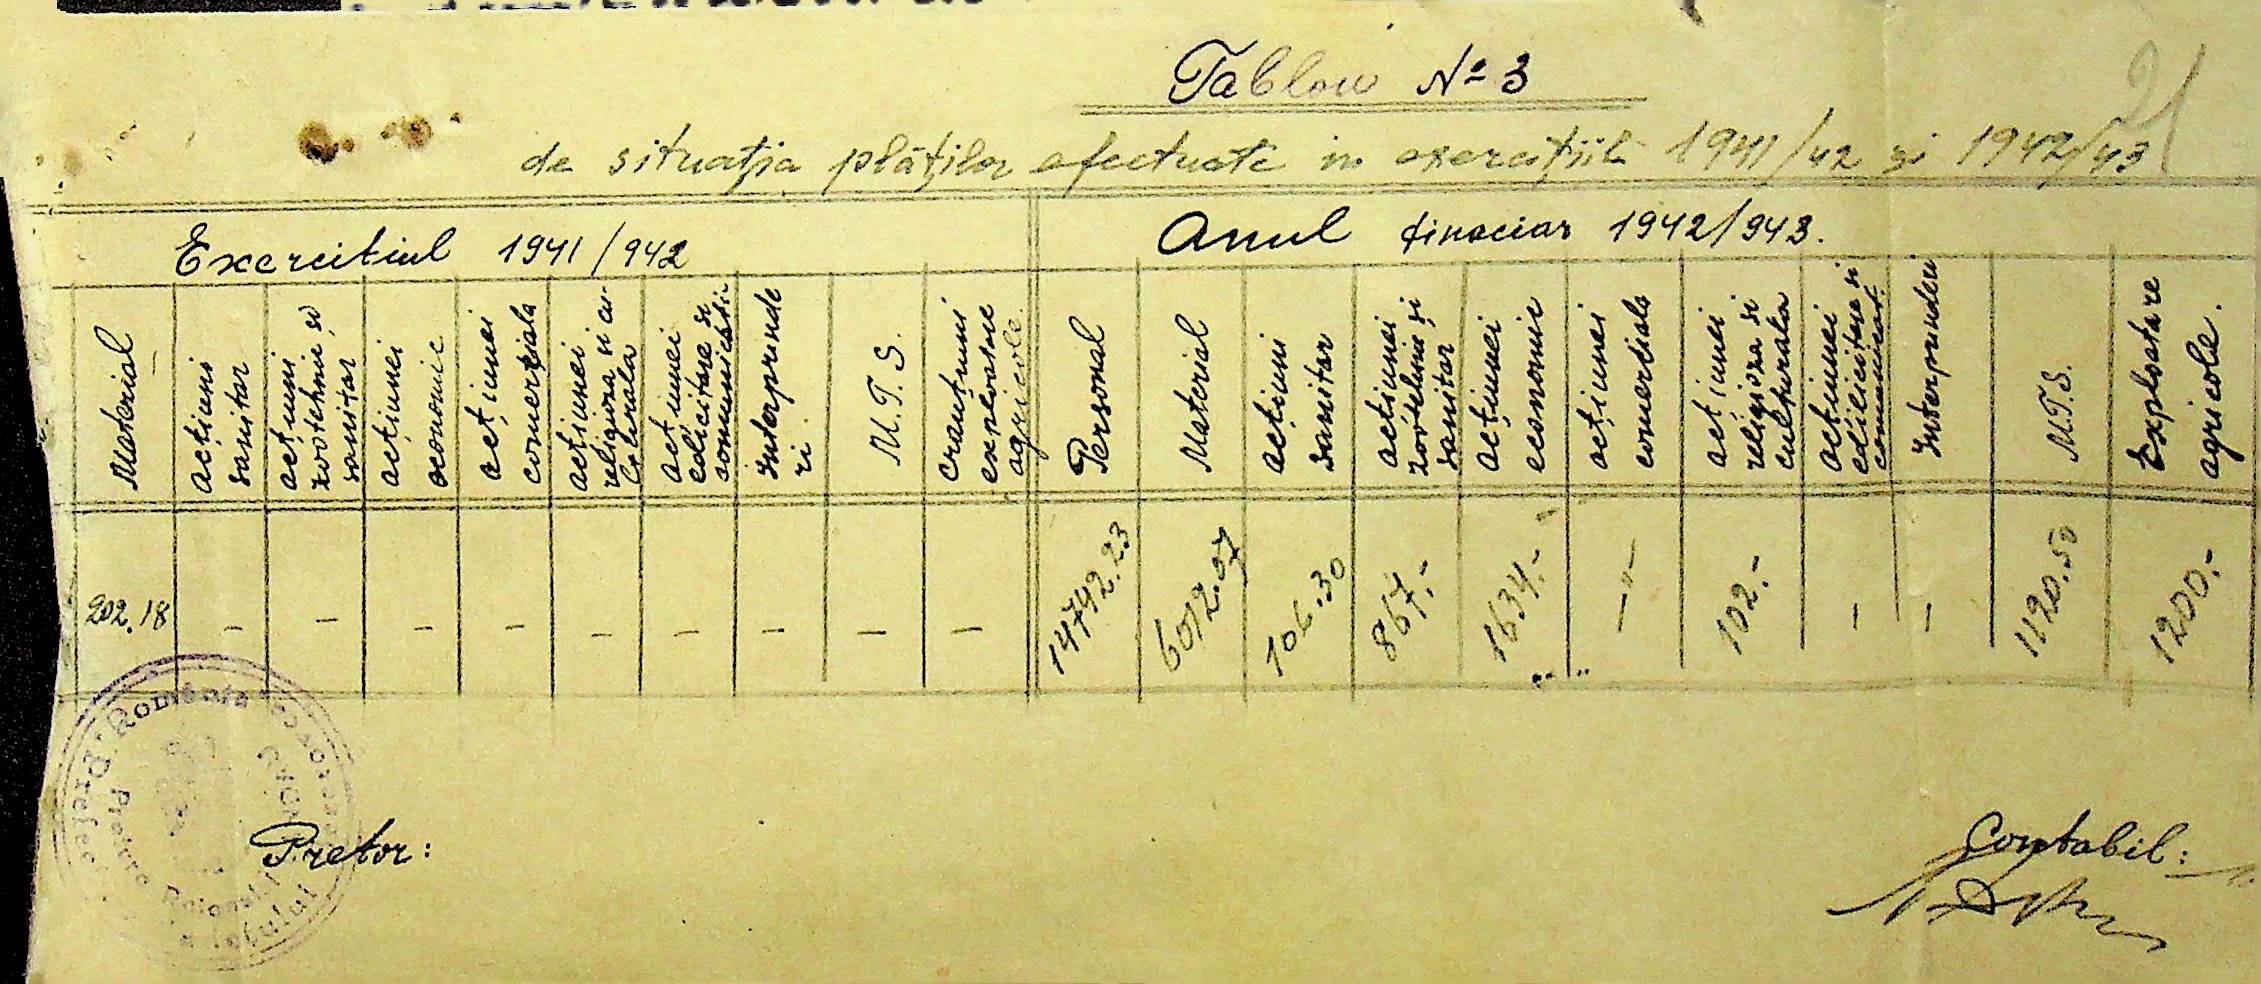 Tablou № 3
21
de situația plăților efectuate in exercițiile 1941/42 și 1942/43
Exercitiul 1941/942
Anul finaciar 1942/943.
Material
acțiuni
sanitar
acțiuni
zootehnie și
sanitar
acțiunei
economic
acțiunei
comerțiala
acțiunei
religioza si cu-
acțiunei
edilicitare si
Interprinde
ri
M.T.S.
exploatare
agricole
Personal
Material
acțiuni
sanitar
acțiunei
zootehnie și
sanitar
acțiunei
economic
acțiunei
comerțiala
acțiunei
religioza si
culturala
acțiunei
edilicitare si
comunicat.
Interprinderi
M.T.S.
Exploatare
agricole.
202.18 – – – – – – – – –
14792.23 6012.07 106.30 867.- 1634.- –"– 102.- – – 1120.50 1200.-
România
Pretor:
Contabil: